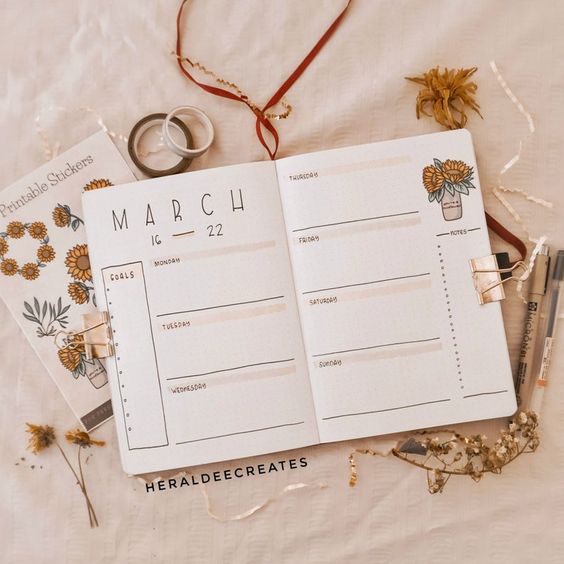 Printable Stickers
MARCH
16 — 22
GOALS
MONDAY
TUESDAY
WEDNESDAY
THURSDAY
FRIDAY
SATURDAY
SUNDAY
NOTES
MICRON
HERALDEECREATES